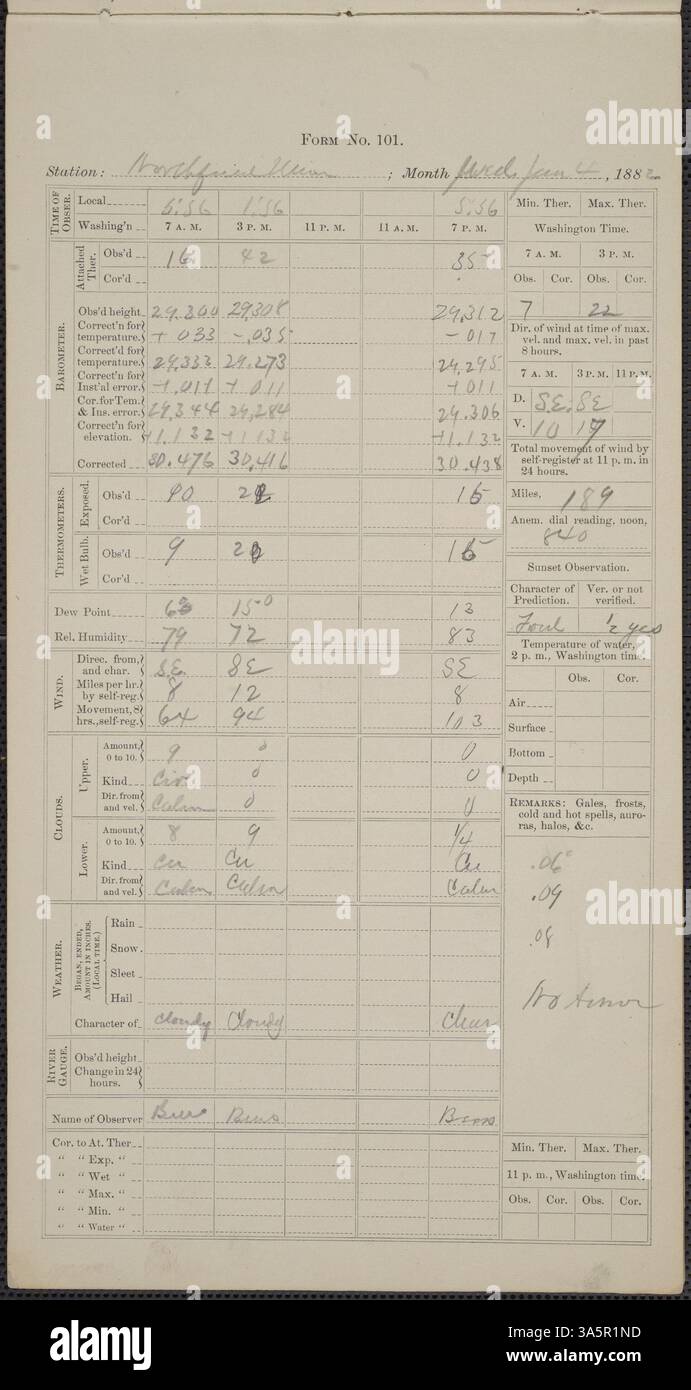 FORM No. 101.
Station: Northfield Minn ; Month Weds Jan 4, 1882
TIME OF OBSER. Local 5:56 1:56 5:56 Min. Ther. Max. Ther.
Washing'n 7 A. M. 3 P. M. 11 P. M. 11 A. M. 7 P. M. Washington Time.
Attached Ther. Obs'd 16 42 35 7 A. M. 3 P. M.
Cor'd Obs. Cor. Obs. Cor.
BAROMETER. Obs'd height 29.300 29.308 29.312 7 22
Correct'n for temperature. + 033 -.035 - 017 Dir. of wind at time of max. vel. and max. vel. in past 8 hours.
Correct'd for temperature. 29.333 29.273 29.295 7 A. M. 3 P. M. 11 P. M.
Correct'n for Inst'al error. +.011 + 011 + 011 D. S.E. SE
Cor. for Tem. & Ins. error. 29.344 29.284 29.306 V. 10 17
Correct'n for elevation. +1.132 +1.132 +1.132 Total movement of wind by self-register at 11 p. m. in 24 hours.
Corrected 30.476 30.416 30.438
THERMOMETERS. Exposed. Obs'd 10 16 Miles, 189
Cor'd Anem. dial reading, noon, 840
Wet Bulb. Obs'd 9 15 Sunset Observation.
Cor'd Character of Prediction. Ver. or not verified.
Dew Point 15 13 Foul ½ yes
Rel. Humidity 79 72 83 Temperature of water, 2 p. m., Washington time.
WIND. Direc. from, and char. S.E. SE SE Obs. Cor.
Miles per hr. by self-reg. 8 12 8 Air
Movement, 8 hrs., self-reg. 64 94 103 Surface
CLOUDS. Upper. Amount, 0 to 10. 9 0 0 Bottom
Kind 0 0 Depth
Dir. from and vel. Calm 0 0 REMARKS: Gales, frosts, cold and hot spells, auroras, halos, &c.
Lower. Amount, 0 to 10. 8 9 ¼
Kind Cu Cu Cu .06
Dir. from and vel. Calm Calm Calm .09
WEATHER. BEGAN, ENDED, AMOUNT IN INCHES. (LOCAL TIME.) Rain
Snow .08
Sleet
Hail No
Character of Cloudy Cloudy Clear
RIVER GAUGE. Obs'd height
Change in 24 hours.
Name of Observer
Cor. to At. Ther Min. Ther. Max. Ther.
" " Exp. " 11 p. m., Washington time.
" " Wet " Obs. Cor. Obs. Cor.
" " Max. "
" " Min. "
" " Water "
alamy
Image ID: 3A5R1ND
www.alamy.com